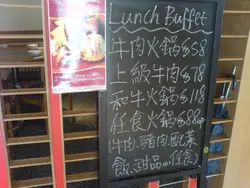 Lunch Buffet
牛肉火鍋$58
上級牛肉$78
和牛火鍋$118
任食火鍋$88
(牛肉.豬肉.配菜
飯.甜品...任食)